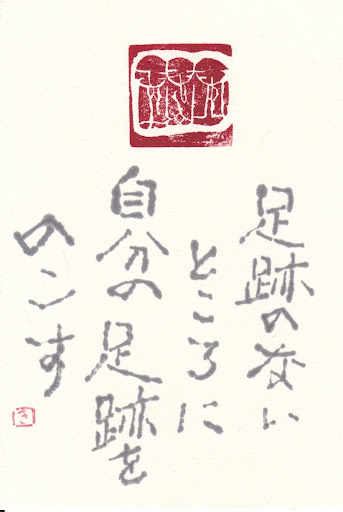 足跡のない
ところに
自分の足跡を
のこす